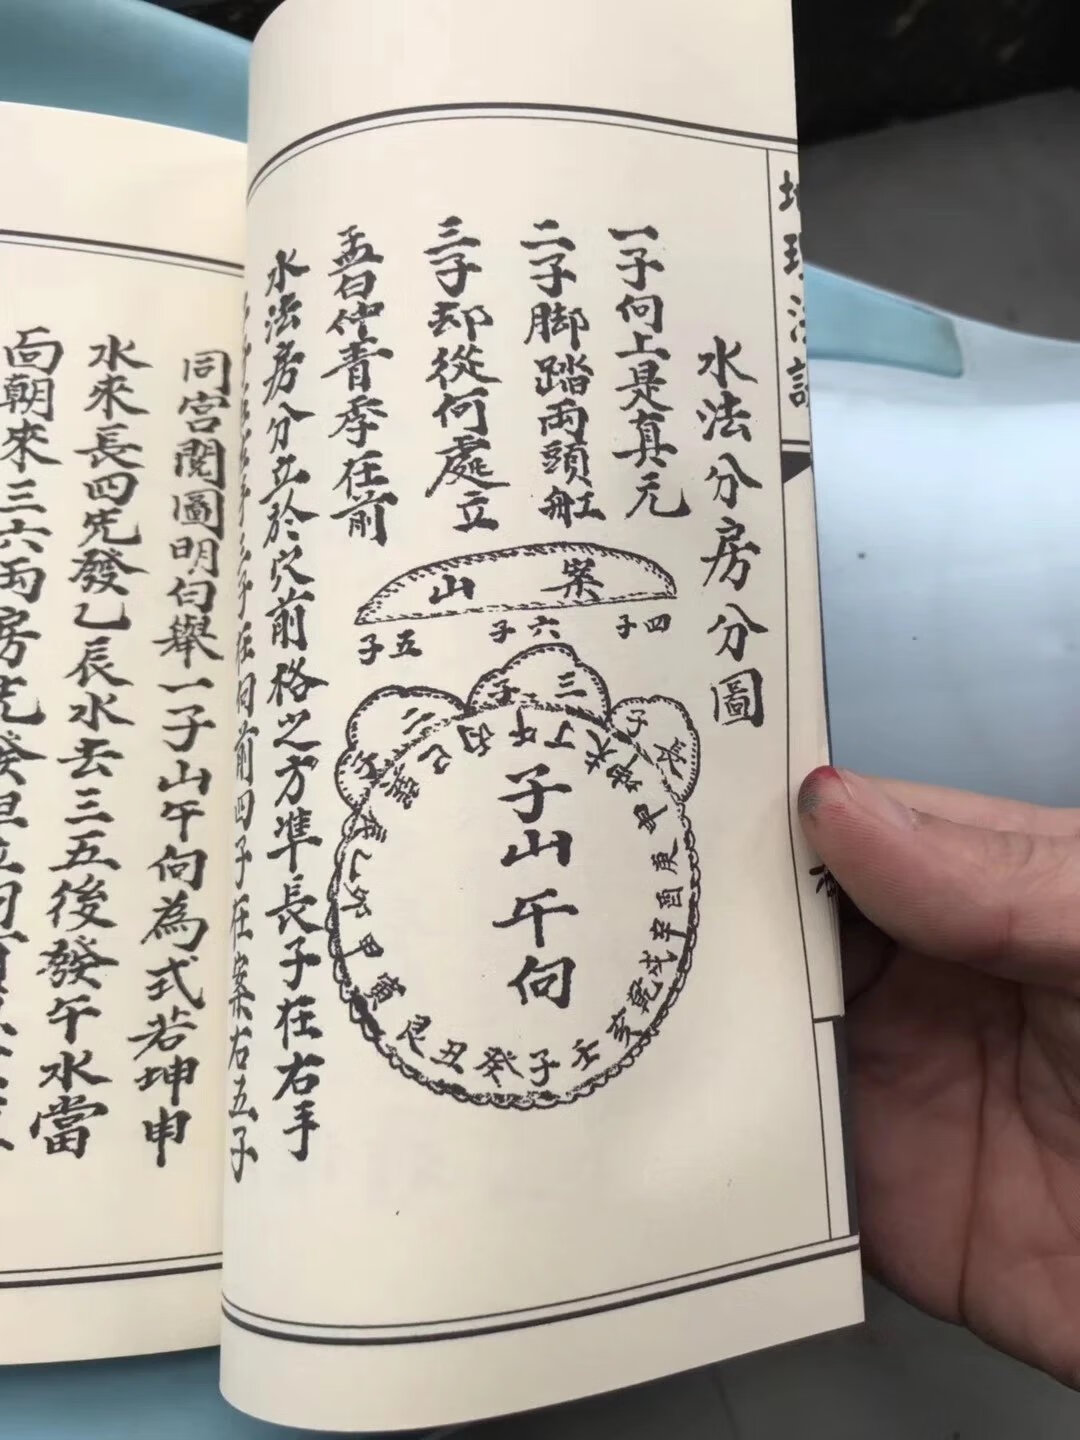 水法分房分圖
一子向上是真元
二子脚踏兩頭舡
三子却從何處立
孟白仲青季在前
案山
四子
六子
五子
三子
長子
二
子山午向
丁午丙巳巽辰乙卯甲寅艮丑癸子壬亥乾戌辛酉庚申坤未
水法房分立於穴前格之方準長子在右手
子在向前四子在案右五子
同宮閱圖明白舉一子山午向為式若坤申
水來長四先發乙辰水去三五後發午水當
面朝來三六两房先發